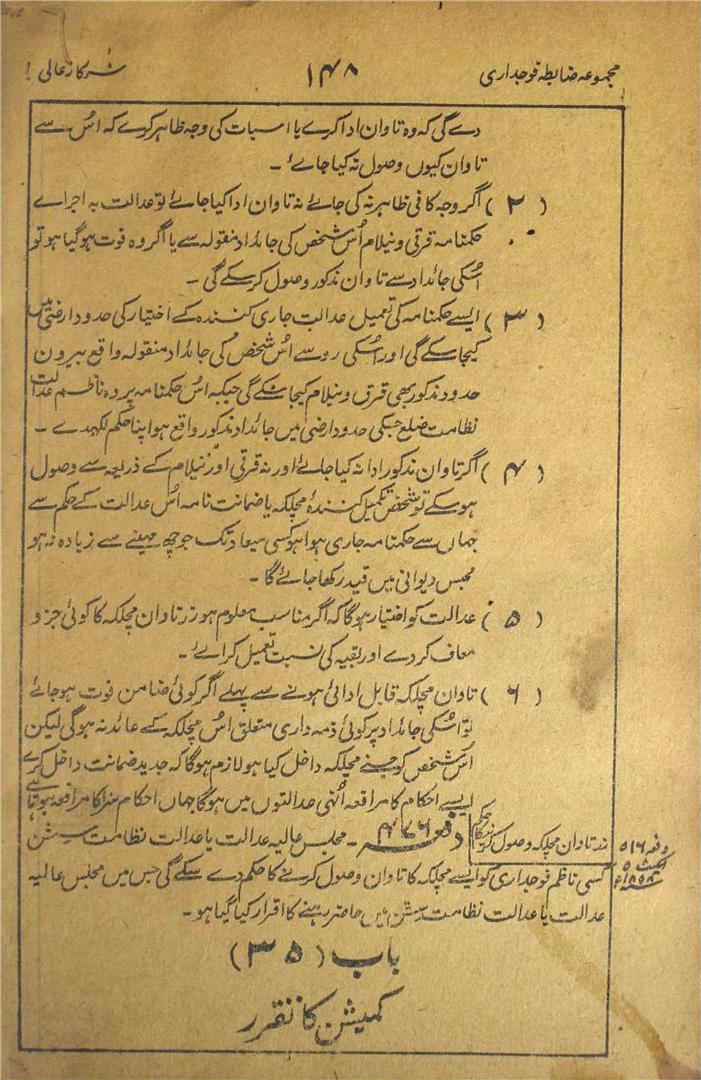 مجموعہ ضابطہ فوجداری
۱۴۸
سرکار عالی
دے گی کہ وہ تاوان ادا کرے یا اس بات کی وجہ ظاہر کرے کہ اُس سے
تاوان کیوں وصول نہ کیا جائے ۔
( ۲ ) اگر وجہ کافی ظاہر نہ کی جائے نہ تاوان ادا کیا جائے تو عدالت بہ اجرائے
حکمنامہ قرقی و نیلام اُس شخص کی جائداد منقولہ سے یا اگر وہ فوت ہو گیا ہو تو
اُسکی جائداد سے تاوان مذکور وصول کر سکے گی ۔
( ۳ ) ایسے حکمنامہ کی تعمیل عدالت جاری کنندہ کے اختیار کی حدود ارضی میں
کیجا سکے گی اور اسکی رو سے اُس شخص کی جائداد منقولہ واقع بیرون
حدود مذکور بھی قرق و نیلام کیجا سکے گی جبکہ اُس حکمنامہ پر وہ ناظم عدالت
نظامت ضلع جسکی حدود ارضی میں جائداد مذکور واقع ہو اپنا حکم لکھدے ۔
( ۴ ) اگر تاوان مذکور ادا نہ کیا جائے اور نہ قرقی اور نیلام کے ذریعہ سے وصول
ہو سکے تو شخص تکمیل کنندہ مچلکہ یا ضمانت نامہ اُس عدالت کے حکم سے
جہاں سے حکمنامہ جاری ہوا ہو کسی میعاد تک جو چھ مہینے سے زیادہ نہ ہو
محبس دیوانی میں قید رکھا جائے گا ۔
( ۵ ) عدالت کو اختیار ہو گا کہ اگر مناسب معلوم ہو زر تاوان مچلکہ کا کوئی جزو
معاف کر دے اور بقیہ کی نسبت تعمیل کرائے ۔
( ۶ ) تاوان مچلکہ قابل ادائی ہونے سے پہلے اگر کوئی ضامن فوت ہو جائے
تو اُسکی جائداد پر کوئی ذمہ داری متعلق اُس مچلکہ کے عائد نہ ہو گی لیکن
اُس شخص کو جسنے مچلکہ داخل کیا ہو لازم ہو گا کہ جدید ضمانت داخل کرے
ایسے احکام کا مرافعہ اُنہی عدالتوں میں ہو گا جہاں احکام سزا کا مرافعہ ہوتا ہے
زر تاوان مچلکہ وصول کرنیکا حکم
دفعہ ۵۱۶ ایکٹ ۵ ۱۸۹۸ء
دفعہ ۴۷۶ ۔ مجلس عالیہ عدالت یا عدالت نظامت سیشن
کسی ناظم فوجداری کو ایسے مچلکہ کا تاوان وصول کرنے کا حکم دے سکے گی جس میں مجلس عالیہ
عدالت یا عدالت نظامت سیشن میں حاضر رہنے کا اقرار کیا گیا ہو ۔
باب ( ۳۵ )
کمیشن کا تقرر